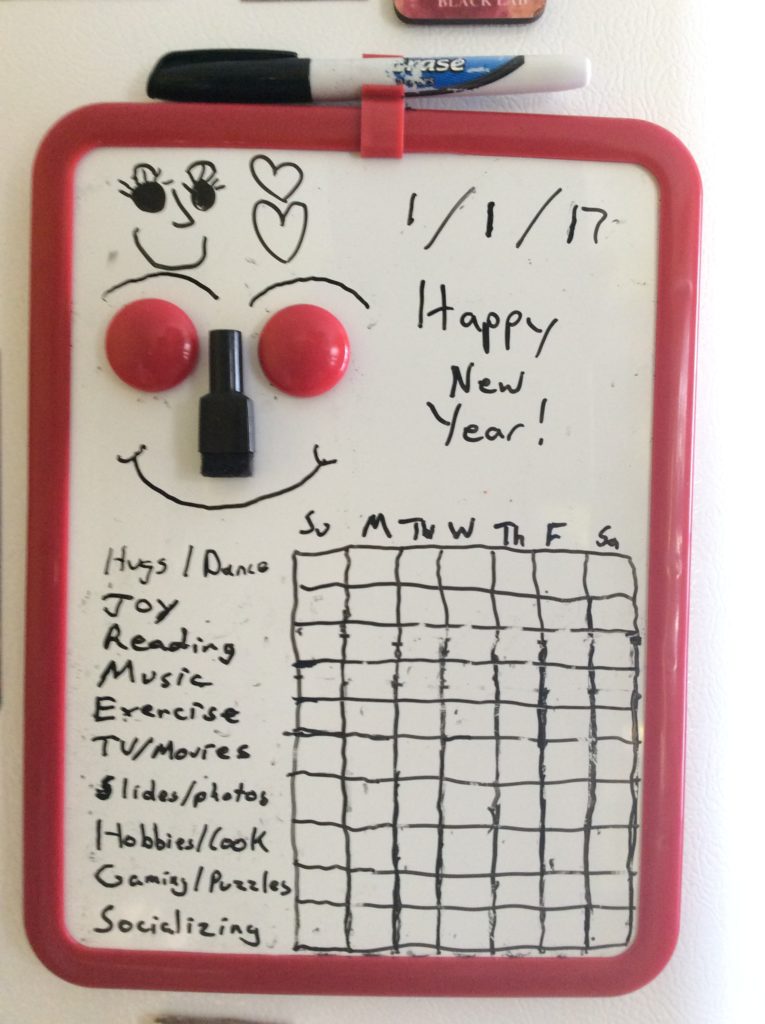 BLACK LAB
Erase
1/1/17
Happy
New
Year!
Su M Tu W Th F Sa
Hugs / Dance
Joy
Reading
Music
Exercise
TV/Movies
Slides/photos
Hobbies/Cook
Gaming/Puzzles
Socializing